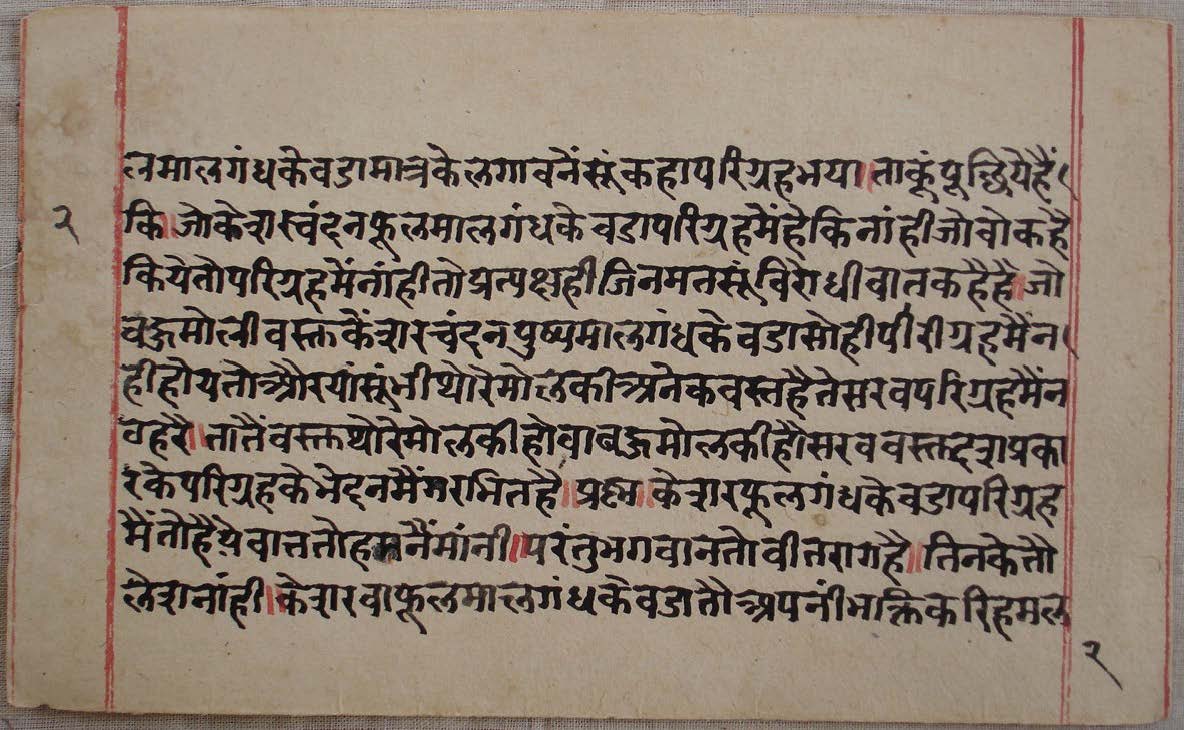 लमालगंधकेवडामात्रकेलगावनेंसूंकहापरिग्रहभया॥ताकूंपूछियेहैं
२
कि॥जोकेशरचंदनफूलमालगंधकेवडापरिग्रहमैंहैकिनांहीजोवोकहै
कियेतोपरिग्रहमेंनांहीतोप्रत्यक्षहीजिनमतसूंविरोधीवातकहैहै॥जो
बहुमोलीवस्तकेशरचंदनपुष्पमालगंधकेवडासोहीपरीग्रहमैंन
हीहौयतोऔरयांसूंभीथोरेमोलकीअनेकवस्तहैतेसरवपरिग्रहमैंन
वहरै॥तातैंवस्तथोरेमोलकीहोवाबहुमोलकीहौसरववस्तदशप्रका
रकेपरिग्रहकेभेदनमैंगरभितहै॥प्रश्न॥केशरफूलगंधकेवडापरिग्रह
मैंतोहैयेवाततोहमनैंमांनी॥परंतुभगवानतोवीतरागहै॥तिनकेतौ
लेशनांही॥केशरवाफूलमालगंधकेवडातौअपनीभक्तिकरिहमल
२